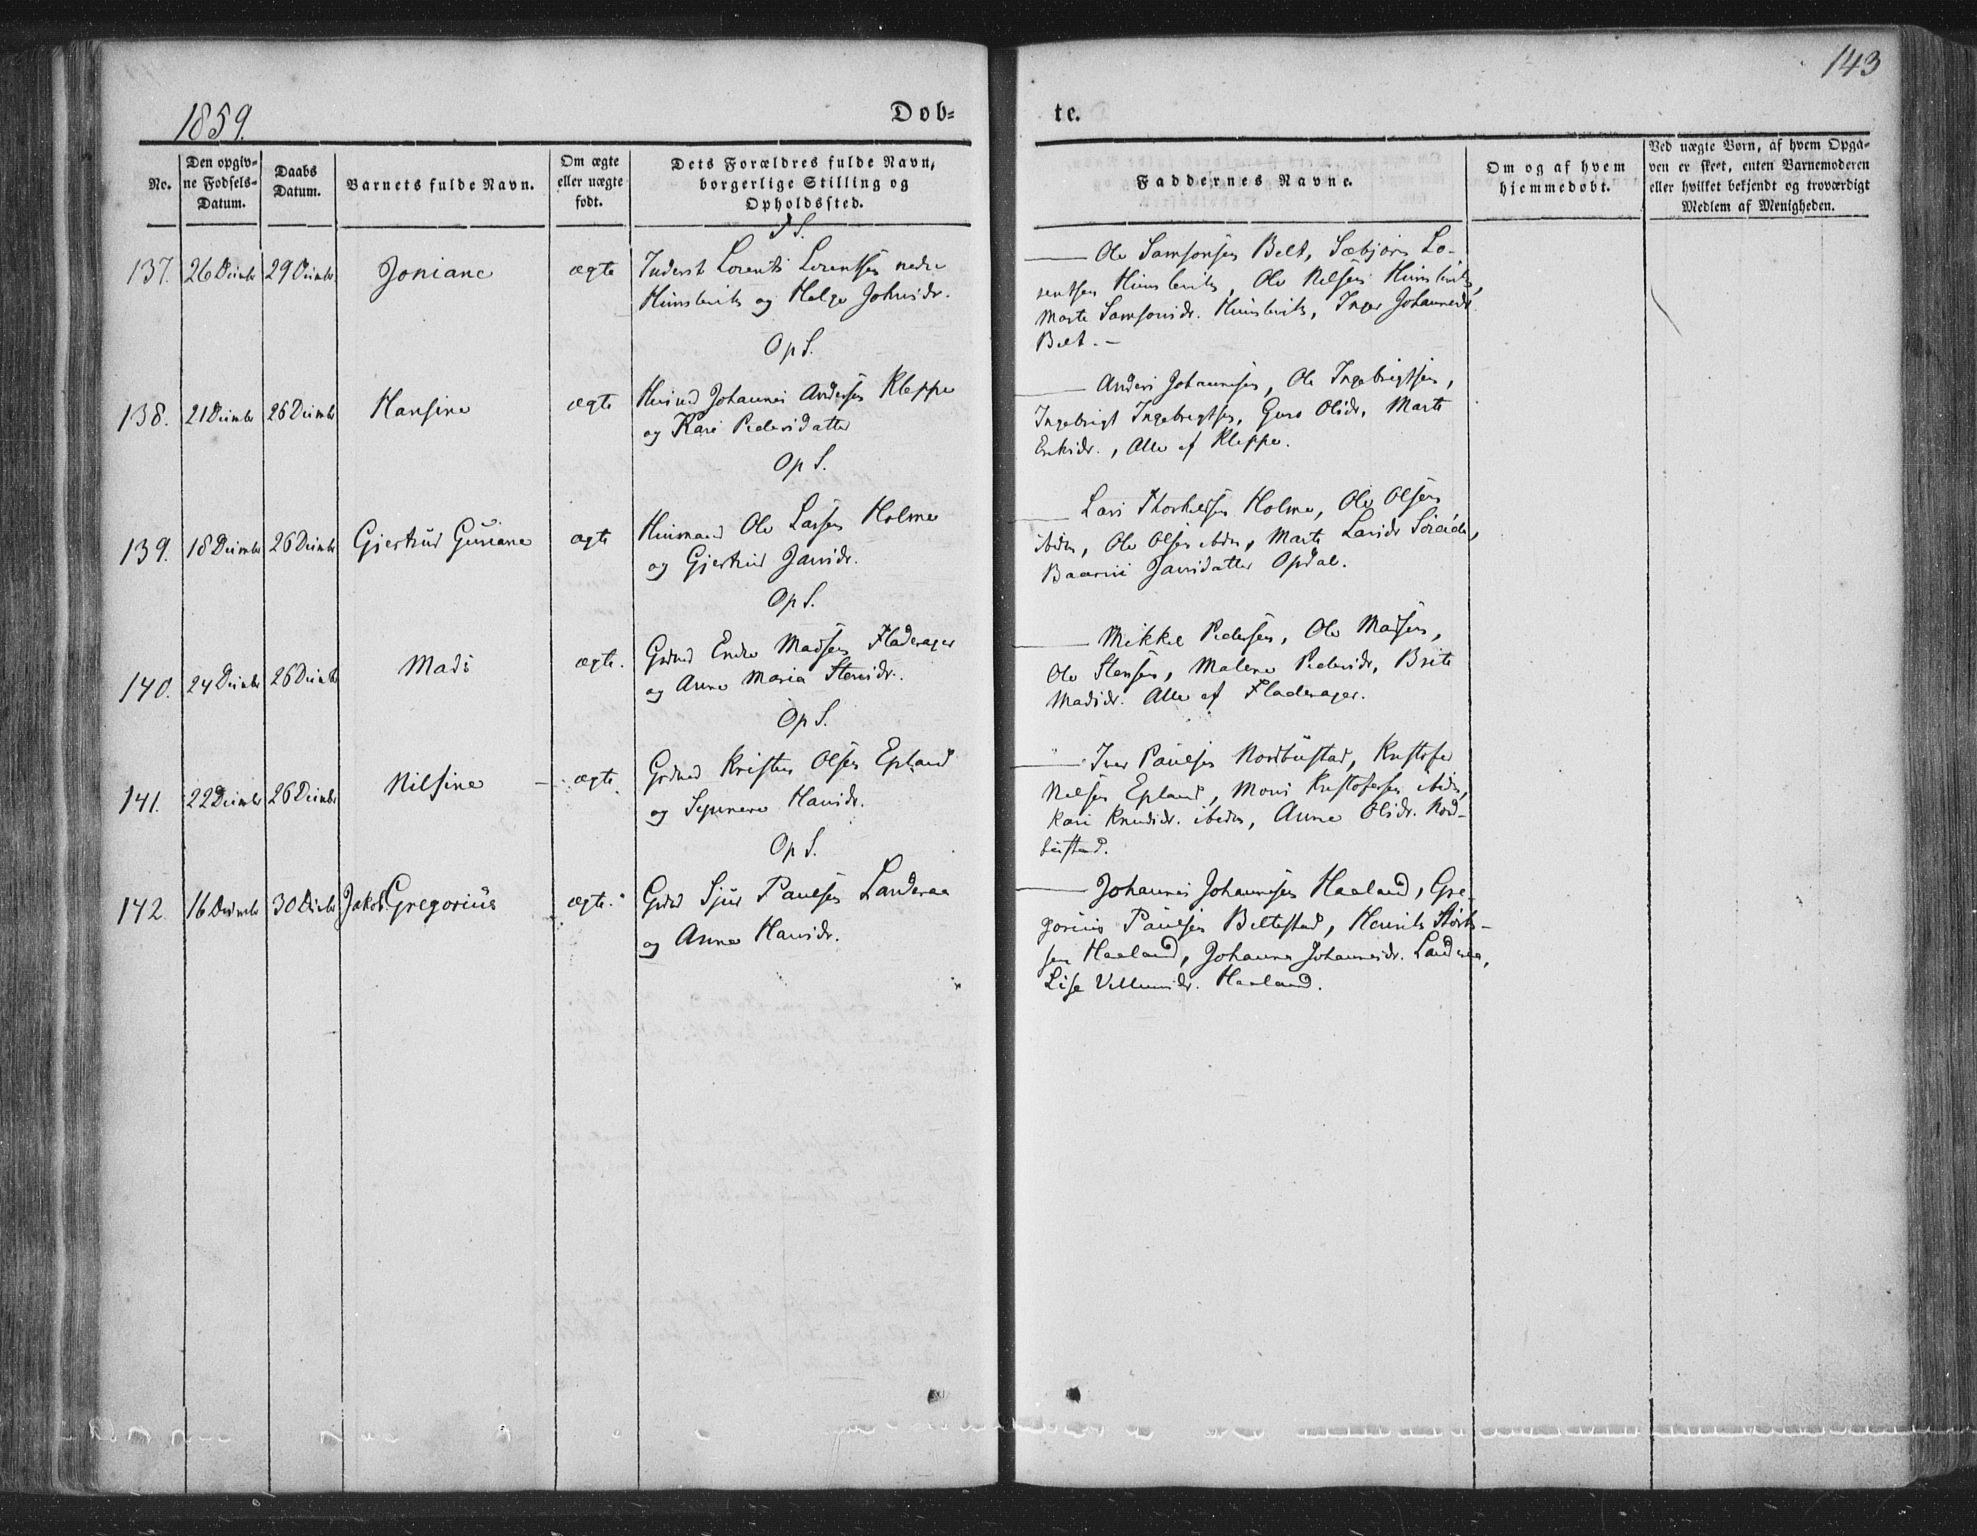 143
1859.
Dob= te.
No.
Den opgiv-
ne Fødsels-
Datum.
Daabs
Datum.
Barnets fulde Navn.
Om ægte
eller uægte
født.
Dets Forældres fulde Navn,
borgerlige Stilling og
Opholdssted.
Faddernes Navne.
Om og af hvem
hjemmedøbt.
Ved uægte Børn, af hvem Opga-
ven er skeet, enten Barnemoderen
eller hvilket bekjendt og troværdigt
Medlem af Menigheden.
137. 26 Decmbr 29 Decmbr Joniane ægte
Inderst Lorents Lorentsen nedre
og Helge Johnsdr.
Ole Samsonsen Belt, Sæbjørn Lo-
rentsen Ole Nilsen
Marte Samsonsdr. Inger Johannesdr
Belt. —
Op S.
138. 21 Decmbr 26 Decmbr Hansine ægte
Husmd Johannes Andersen Kleppe
og Kari Pedersdatter
Anders Johannesen, Ole Ingebrigtsen,
Ingebrigt Ingebrigtsen, Guro Olsdr, Marte
Eriksdr., Alle af Kleppe.
Op S.
139. 18 Decmbr 26 Decmbr Gjertrud Guriane ægte
Husmand Ole Larsen Holme
og Gjertrud Jansdr.
Lars Thorkelsen Holme, Ole Olsen
ibdm, Ole Olsen ibdm, Marte Larsdr
Jansdatter Opdal.
Op S.
140. 24 Decmbr 26 Decmbr Mads ægte.
Grdmd Endre Madsen Fladerager
og Anne Maria Stensdr.
Mikkel Pedersen, Ole Madsen,
Ole Stensen, Malene Pedersdr, Brite
Madsdr. Alle af Fladerager.
Op S.
141. 22 Decmbr 26 Decmbr Nilsine ægte
Grdmd Kristen Olsen Epland
og Hansdr.
Iver Paulsen Nordbustad, Kristofer
Nilsen Epland, Mons Kristofersen ibdm,
Kari Knudsdr. ibdm, Anne Olsdr. Nord-
bustad.
Op S.
142. 16 Decmbr 30 Decmbr Jakob Gregorius ægte.
Grdmd Sjur Paulsen Landeraa
og Anne Hansdr.
Johannes Johannesen Haaland, Gre-
gorius Paulsen Beltestad, Henrik
sen Haaland, Johanne Johannesdr. Landeraa,
Lise Villumsdr. Haaland.